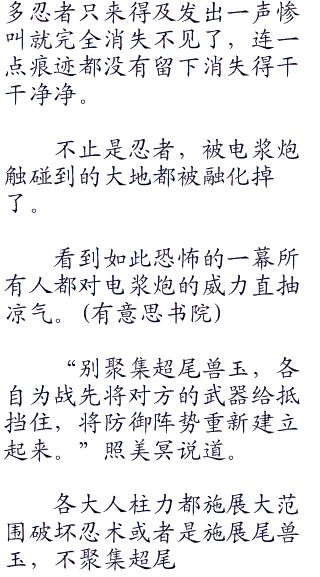 多忍者只来得及发出一声惨
叫就完全消失不见了，连一
点痕迹都没有留下消失得干
干净净。
不止是忍者，被电浆炮
触碰到的大地都被融化掉
了。
看到如此恐怖的一幕所
有人都对电浆炮的威力直抽
凉气。(有意思书院)
“别聚集超尾兽玉，各
自为战先将对方的武器给抵
挡住，将防御阵势重新建立
起来。”照美冥说道。
各大人柱力都施展大范
围破坏忍术或者是施展尾兽
玉，不聚集超尾